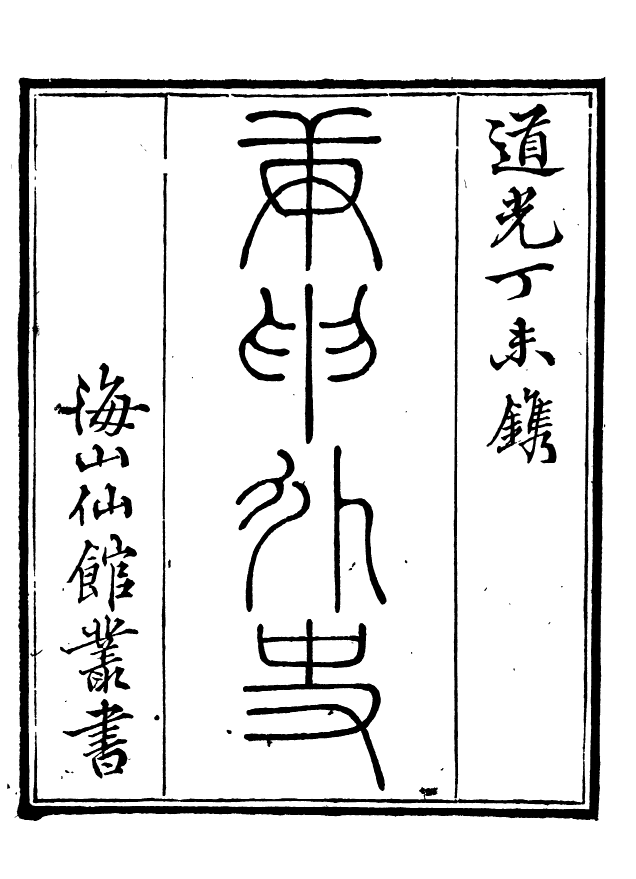 道光丁未鐫
庚申外史
海山仙館叢書